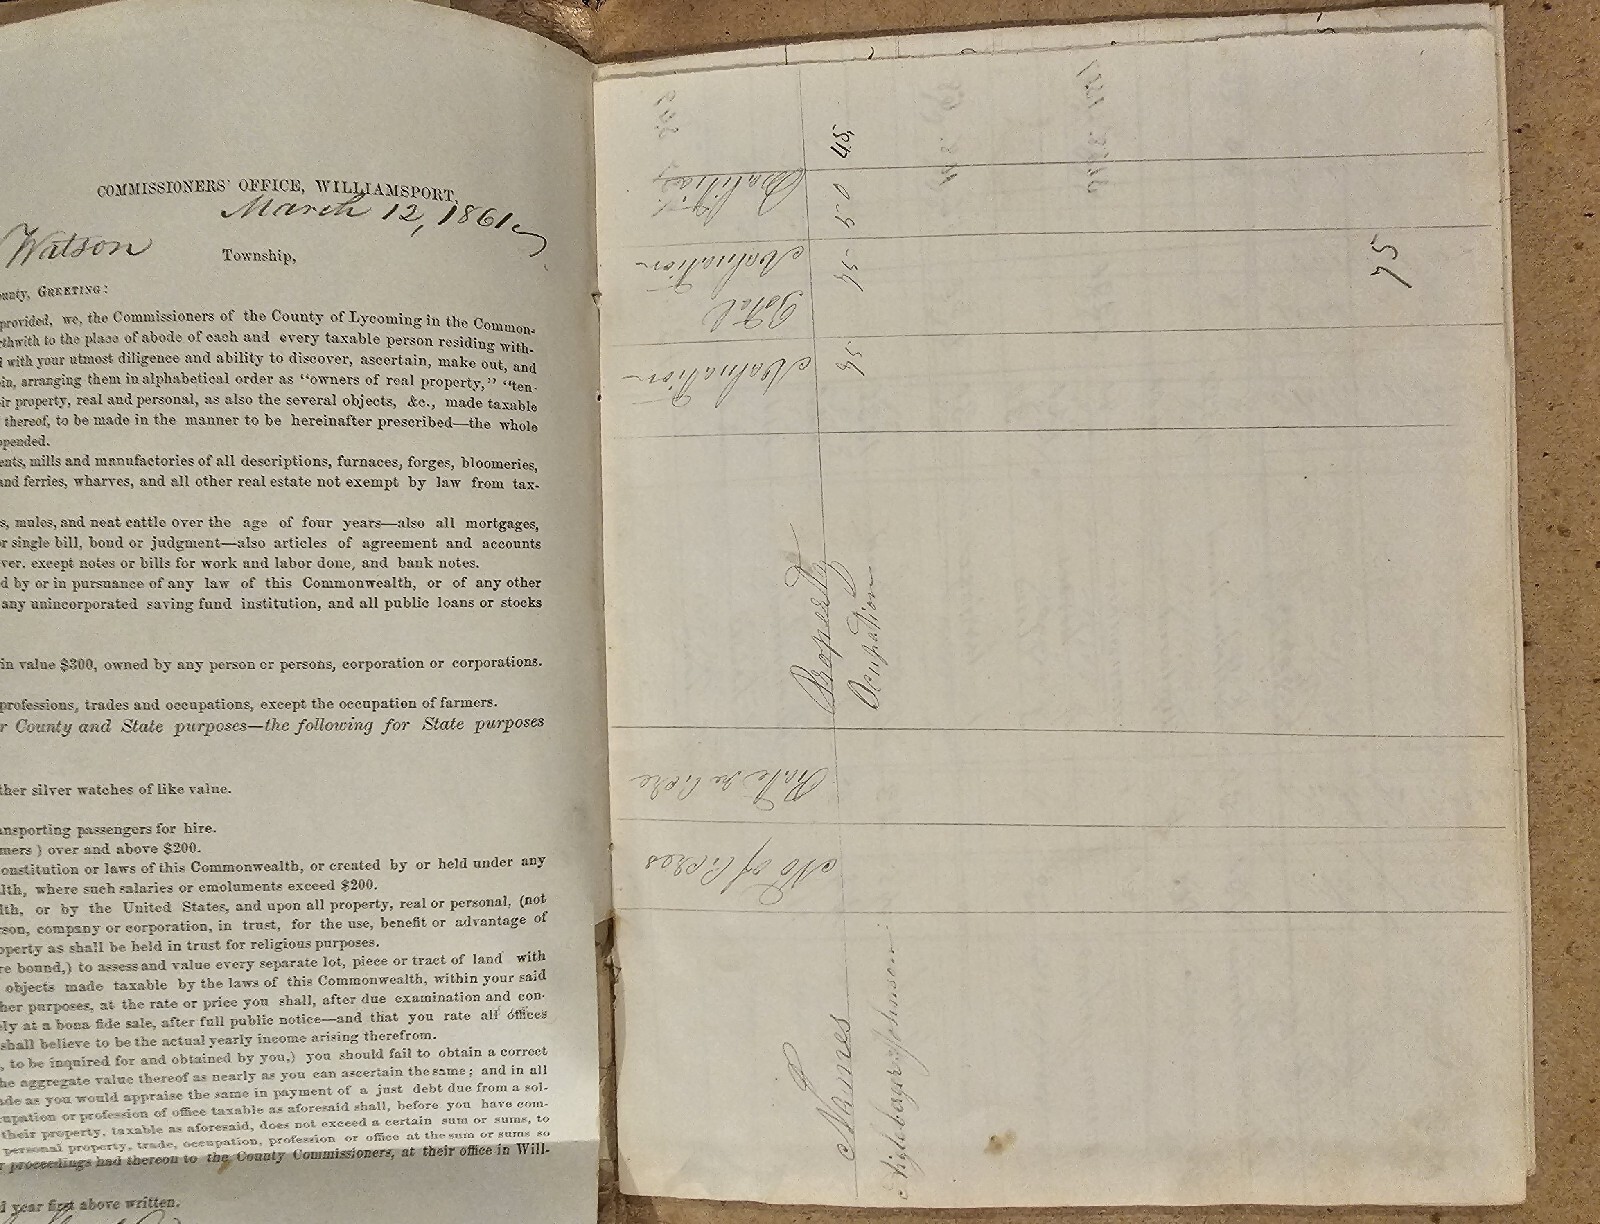 COMMISSIONERS' OFFICE, WILLIAMSPORT,
March 12, 1861
Watson Township,
ounty, GREETING:
provided, we, the Commissioners of the County of Lycoming in the Common-
rthwith to the place of abode of each and every taxable person residing with-
d with your utmost diligence and ability to discover, ascertain, make out, and
in, arranging them in alphabetical order as "owners of real property," "ten-
ir property, real and personal, as also the several objects, &c., made taxable
thereof, to be made in the manner to be hereinafter prescribed—the whole
ppended.
ents, mills and manufactories of all descriptions, furnaces, forges, bloomeries,
and ferries, wharves, and all other real estate not exempt by law from tax-
s, mules, and neat cattle over the age of four years—also all mortgages,
or single bill, bond or judgment—also articles of agreement and accounts
ver, except notes or bills for work and labor done, and bank notes.
d by or in pursuance of any law of this Commonwealth, or of any other
any unincorporated saving fund institution, and all public loans or stocks
in value $300, owned by any person or persons, corporation or corporations.
professions, trades and occupations, except the occupation of farmers.
r County and State purposes—the following for State purposes
ther silver watches of like value.
ansporting passengers for hire.
mers ) over and above $200.
onstitution or laws of this Commonwealth, or created by or held under any
lth, where such salaries or emoluments exceed $200.
lth, or by the United States, and upon all property, real or personal, (not
rson, company or corporation, in trust, for the use, benefit or advantage of
operty as shall be held in trust for religious purposes.
re bound,) to assess and value every separate lot, piece or tract of land with
objects made taxable by the laws of this Commonwealth, within your said
her purposes, at the rate or price you shall, after due examination and con-
ly at a bona fide sale, after full public notice—and that you rate all offices
shall believe to be the actual yearly income arising therefrom.
, to be inquired for and obtained by you,) you should fail to obtain a correct
he aggregate value thereof as nearly as you can ascertain the same; and in all
ade as you would appraise the same in payment of a just debt due from a sol-
upation or profession of office taxable as aforesaid shall, before you have com-
their property, taxable as aforesaid, does not exceed a certain sum or sums, to
personal property, trade, occupation, profession or office at the sum or sums so
r proceedings had thereon to the County Commissioners, at their office in Will-
d year first above written.
Names
No of Acres
Rate per Acre
Property
Valuation
Total Valuation
Occupation
Johnson
54
54
50
45
75